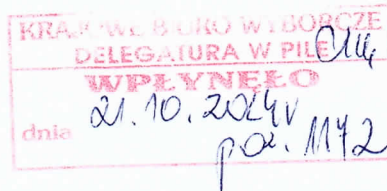 KRAJOWE BIURO WYBORCZE
DELEGATURA W PILE
WPŁYNĘŁO
dnia 21.10.2024r
poz. 1172